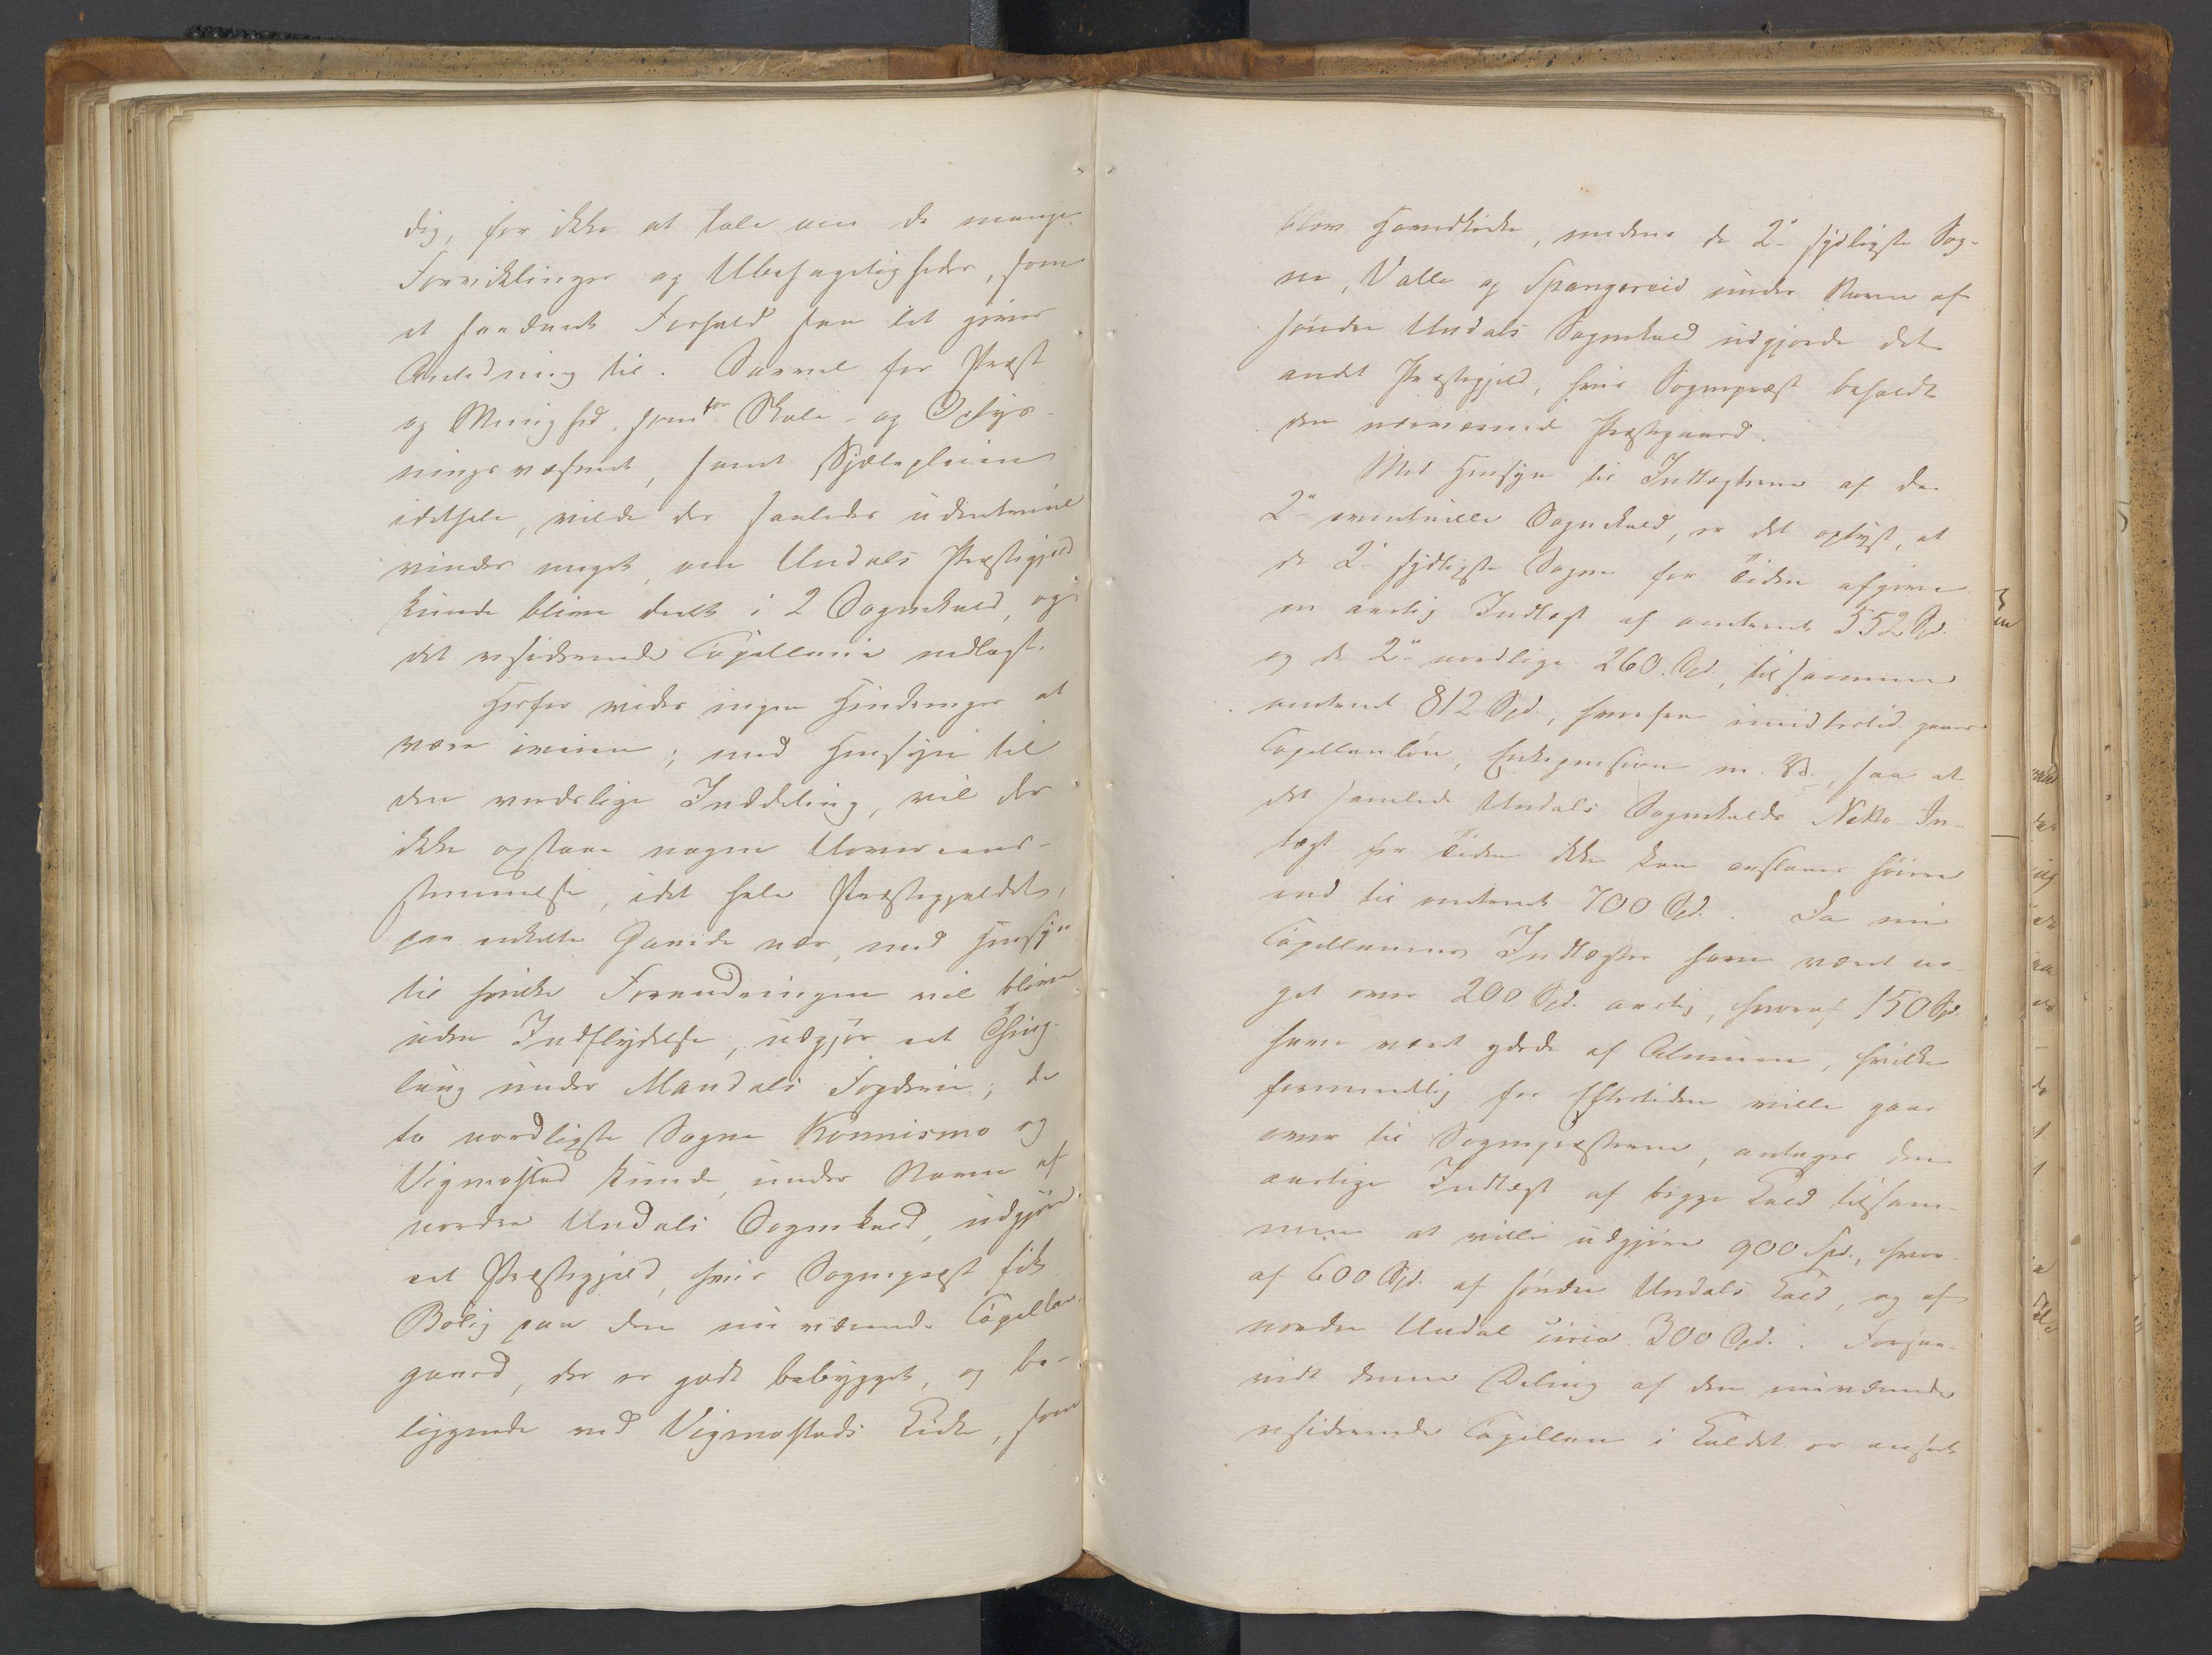 dig, for ikke at tale om de mange
Forviklinger og Ubehageligheder, som
et saadant Forhold saa let giver
Anledning til. Saavel for Præst
og Menighed, som for Skole- og Oplys-
ningsvæsenet, samt Sjælepleien
idethele, vilde der saaledes udentvivl
vindes meget, om Undals Præstegjeld
kunde blive deelt i 2 Sognekald, og
det residerende Capellanie nedlagt.
Herfor vides ingen Hindringer at
være iveien; med Hensyn til
den verdslige Inddeling, vil der
ikke opstaae nogen Uovereens-
stemmelse, idet hele Præstegjeldet,
paa enkelte Gaarde nær, med Hensyn
til hvilke Forandringen vil blive
uden Indflydelse, udgjør eet Thing-
laug under Mandals Fogderie; de
to nordligste Sogne Konnismo og
Vigmostad kunde, under Navn af
nordre Undals Sognekald, udgjøre
eet Præstegjeld, hvis Sognepræst fik
Bolig paa den nu værende Capellan-
gaard, der er godt bebygget, og be-
liggende ved Vigmostads Kirke, som
blev Hovedkirke, medens de 2de sydligste Sog-
ne, Valle og Spangereid under Navn af
søndre Undals Sognekald udgjorde det
andet Præstegjeld, hvis Sognepræst beholdt
den nuværende Præstegaard.
Med Hensyn til Indtægterne af de
2de eventuelle Sognekald, er det oplyst, at
de 2de sydligste Sogne for Tiden afgive
en aarlig Indtægt af omtrent 552 Spd.
og de 2de nordlige 260. Spd., tilsammen
omtrent 812 Spd., hvorfra imidlertid gaaer
Capellanløn, Enkepension m. V., saa at
det samlede Undals Sognekalds Netto-In-
tægt for Tiden ikke kan anslaaes høiere
end til omtrent 700 Spd. Da nu
Capellanens Indtægter have været no-
get over 200 Spd. aarlig, hvoraf 150 Spd.
have været ydede af Almuen, hvilke
formentlig for Eftertiden ville gaae
over til Sognepræsterne, antages den
aarlige Indtægt af begge Kald tilsam-
men at ville udgjøre 900 Spd., hvor-
af 600 Spd. af søndre Undals Kald, og af
nordre Undal circa 300 Spd. Forsaa-
vidt denne Deling af den nuværende
residerende Capellan i Kaldet er anseet